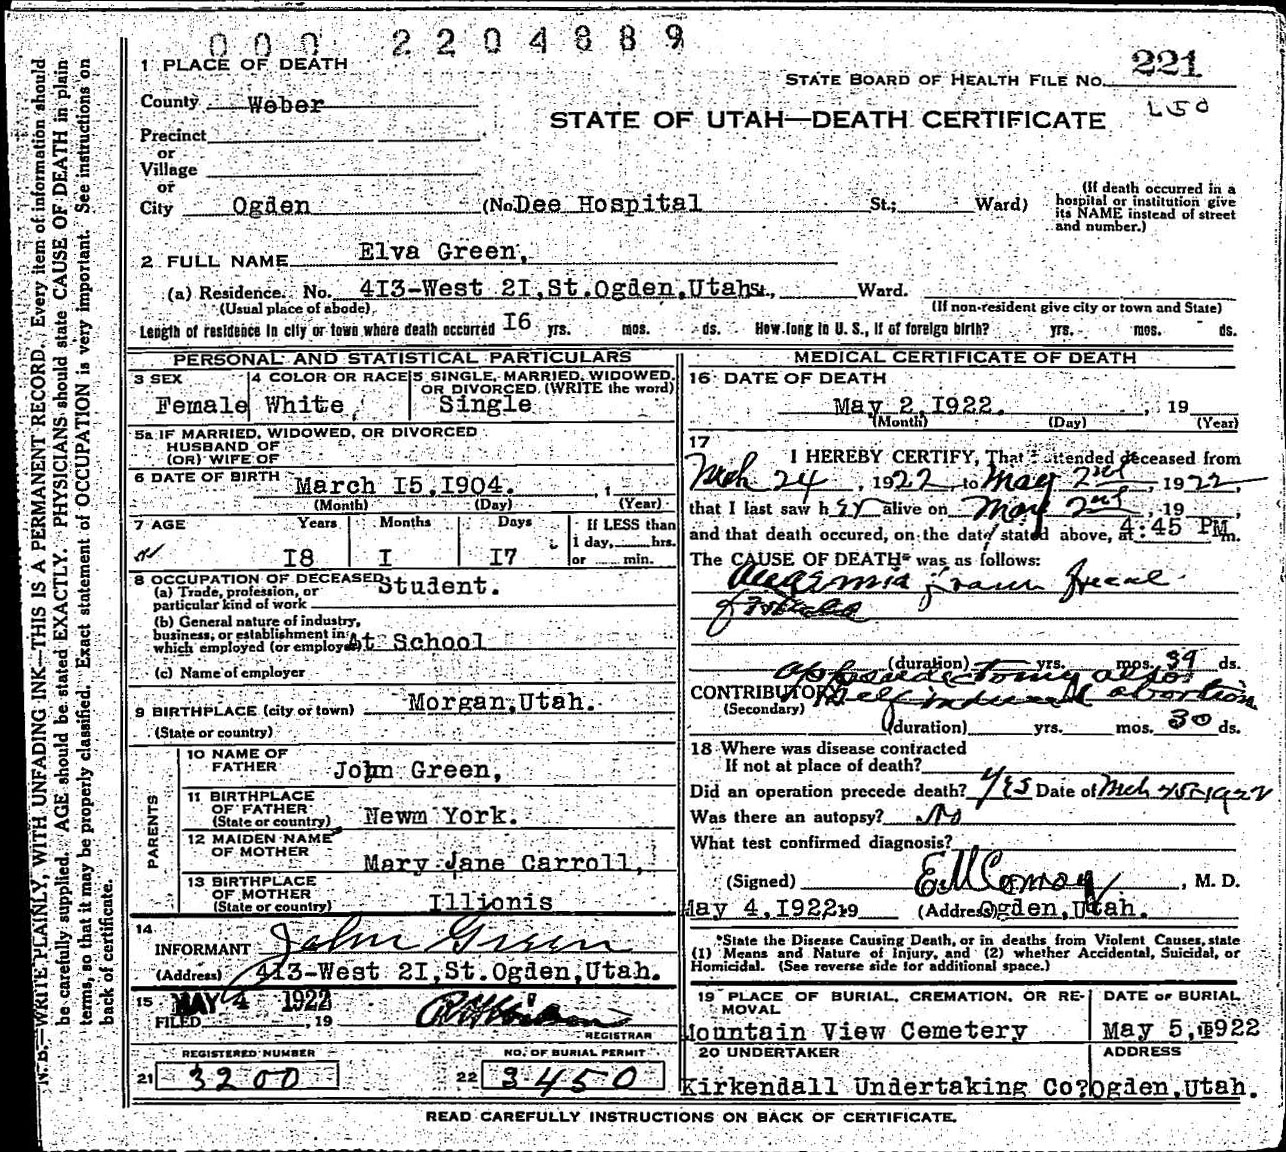 000 2204889
1 PLACE OF DEATH
STATE BOARD OF HEALTH FILE No. 221
L50
County Weber
STATE OF UTAH—DEATH CERTIFICATE
Precinct
or
Village
or
City Ogden (No. Dee Hospital St.; Ward)
(If death occurred in a hospital or institution give its NAME instead of street and number.)
2 FULL NAME Elva Green,
(a) Residence. No. 4I3-West 2I,St.Ogden,Utah. St., Ward.
(Usual place of abode) (If non-resident give city or town and State)
Length of residence in city or town where death occurred I6 yrs. mos. ds. How long in U. S., if of foreign birth? yrs. mos. ds.
PERSONAL AND STATISTICAL PARTICULARS
3 SEX
Female
4 COLOR OR RACE
White
5 SINGLE, MARRIED, WIDOWED, OR DIVORCED (WRITE the word)
Single
5a IF MARRIED, WIDOWED, OR DIVORCED
HUSBAND OF
(OR) WIFE OF
6 DATE OF BIRTH March I5,I904. , 1
(Month) (Day) (Year)
7 AGE Years Months Days If LESS than
1 day, hrs.
I8 I I7 or min.
8 OCCUPATION OF DECEASED Student.
(a) Trade, profession, or
particular kind of work
(b) General nature of industry,
business, or establishment in
which employed (or employer) At School
(c) Name of employer
9 BIRTHPLACE (city or town) Morgan,Utah.
(State or country)
PARENTS
10 NAME OF
FATHER John Green,
11 BIRTHPLACE
OF FATHER
(State or country) Newm York.
12 MAIDEN NAME
OF MOTHER Mary Jane Carroll,
13 BIRTHPLACE
OF MOTHER
(State or country) Illionis
14
INFORMANT John Green
(Address) 4I3-West 2I,St.Ogden,Utah.
15 MAY 4 1922
FILED , 19
REGISTRAR
REGISTERED NUMBER
21 3200
NO. OF BURIAL PERMIT
22 3450
MEDICAL CERTIFICATE OF DEATH
16 DATE OF DEATH
May 2,I922. , 19
(Month) (Day) (Year)
17
I HEREBY CERTIFY, That I attended deceased from
Mch 24, 1922, to May 2nd, 1922,
that I last saw her alive on May 2nd, 19 ,
and that death occured, on the date stated above, at 4:45 PM m.
The CAUSE OF DEATH* was as follows:
from fecal
(duration) yrs. mos. 39 ds.
also
CONTRIBUTORY Self induced abortion
(Secondary)
(duration) yrs. mos. 30 ds.
18 Where was disease contracted
If not at place of death?
Did an operation precede death? Yes Date of Mch 25-1922
Was there an autopsy? No
What test confirmed diagnosis?
(Signed) , M. D.
May 4,I922. 19 (Address) Ogden,Utah.
*State the Disease Causing Death, or in deaths from Violent Causes, state
(1) Means and Nature of Injury, and (2) whether Accidental, Suicidal, or
Homicidal. (See reverse side for additional space.)
19 PLACE OF BURIAL, CREMATION, OR RE-
MOVAL
Mountain View Cemetery
DATE OF BURIAL
May 5, 1922
20 UNDERTAKER
Kirkendall Undertaking Co?
ADDRESS
Ogden,Utah.
READ CAREFULLY INSTRUCTIONS ON BACK OF CERTIFICATE.
N. B.—WRITE PLAINLY, WITH UNFADING INK—THIS IS A PERMANENT RECORD. Every item of information should
be carefully supplied. AGE should be stated EXACTLY. PHYSICIANS should state CAUSE OF DEATH in plain
terms, so that it may be properly classified. Exact statement of OCCUPATION is very important. See instructions on
back of certificate.